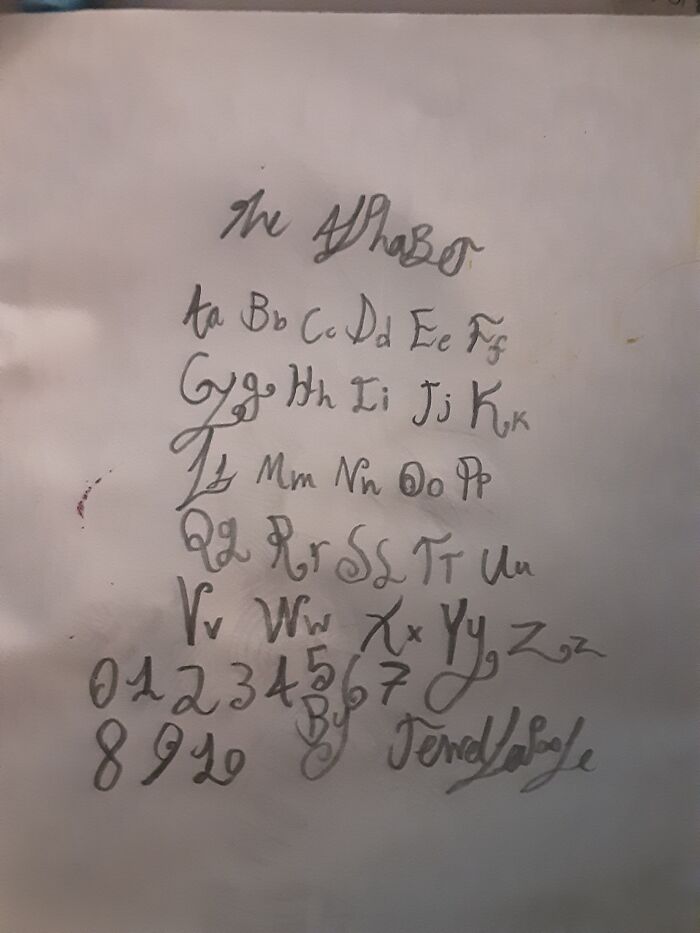 The AlPhaBeT
Aa Bb Cc Dd Ee Ff
Gg Hh Ii Jj Kk
Ll Mm Nn Oo Pp
Qq Rr Ss Tt Uu
Vv Ww Xx Yy Zz
0 1 2 3 4 5 6 7
8 9 10 By Jewell LaPoole